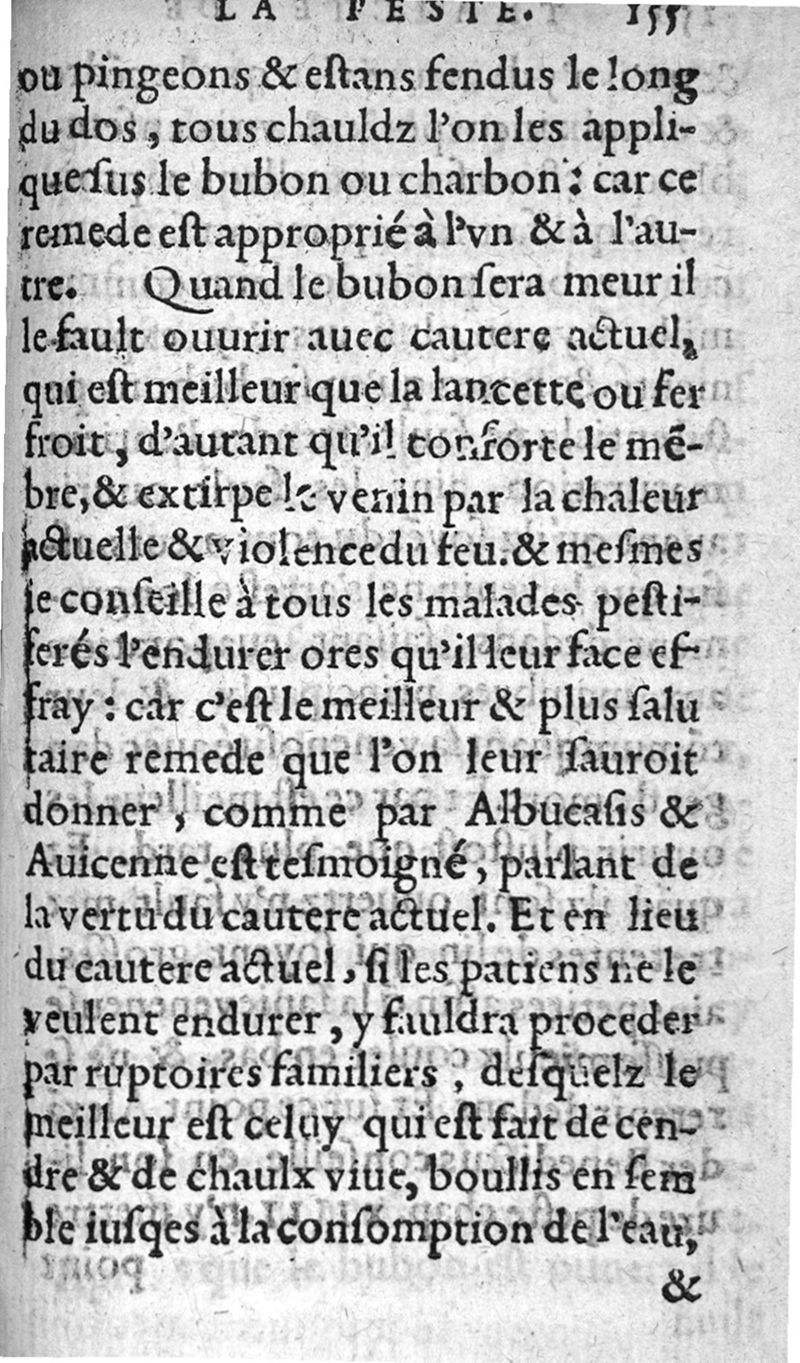 LA PESTE. 155
ou pingeons & eſtans fendus le long
du dos, tous chauldz l'on les appli-
que ſus le bubon ou charbon: car ce
remede eſt approprié à l'vn & à l'au-
tre. Quand le bubon ſera meur il
le fault ouurir auec cautere actuel,
qui eſt meilleur que la lancette ou fer
froit, d'autant qu'il conforte le mē-
bre, & extirpe le venin par la chaleur
actuelle & violence du feu. & meſmes
ie conſeille à tous les malades peſti-
ferés l'endurer ores qu'il leur face ef-
fray: car c'eſt le meilleur & plus ſalu
taire remede que l'on leur ſauroit
donner, comme par Albucaſis &
Auicenne eſt teſmoigné, parlant de
la vertu du cautere actuel. Et en lieu
du cautere actuel, ſi les patiens ne le
veulent endurer, y fauldra proceder
par ruptoires familiers, deſquelz le
meilleur eſt celuy qui eſt fait de cen-
dre & de chaulx viue, boullis en ſem
ble iuſqes à la conſomption de l'eau,
&